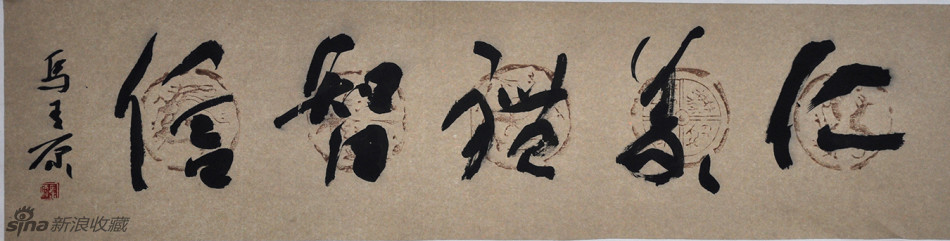 仁義禮智信
sina新浪收藏